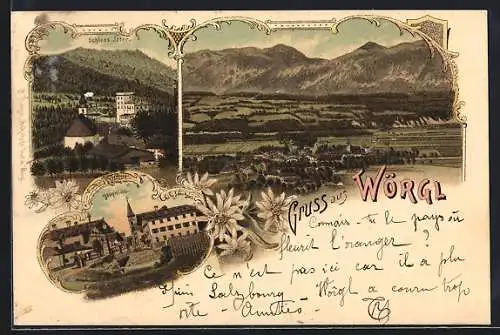 Schloss Itter
Gruss aus WÖRGL
Connais-tu le pays où
fleurit l'oranger ?
Ce n'est pas ici car il a plu
Salzbourg - Wörgl a couru trop
vite - Amitiés -